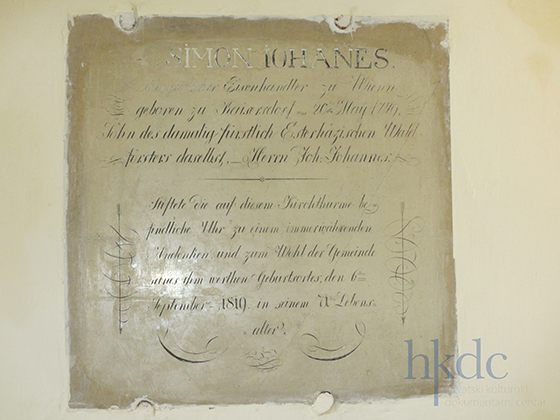 SIMON IOHANES.
Eisenhandler zu Wienn
geboren zu Kaisersdorf den 26ten May 1749.
Sohn des damalig fürstlich Esterházischen Wald
försters daselbst, Herrn Joh: Johannes.
Stiftete die auf diesem Kirchthurme be-
findliche Uhr zu einem immerwährenden
Andenken und zum Wohl der Gemeinde
seines ihm werthen Geburtsortes, den 6ten
September 1819. in seinem Lebens-
alter.
hkdc